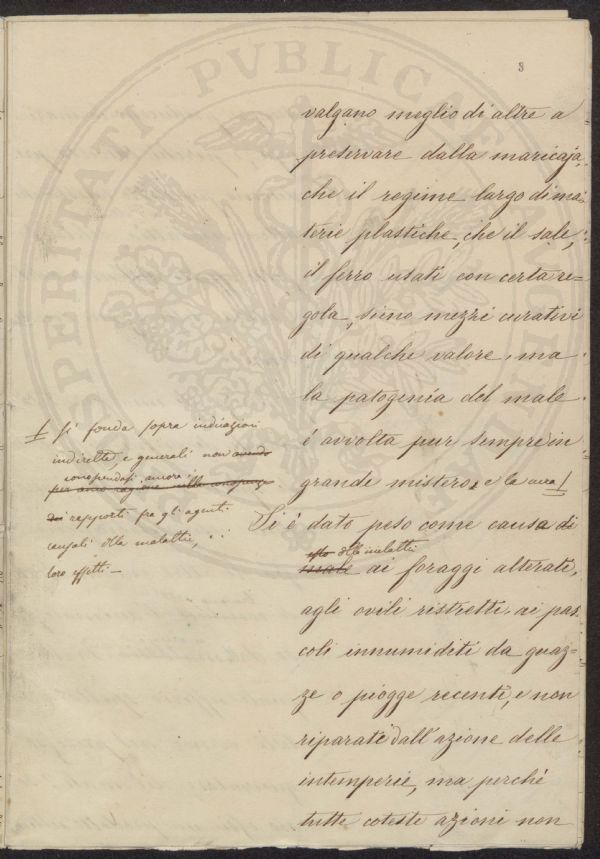 PROSPERITATI PVBLICAE AVGENDAE
3
valgano meglio di altre a
preservare dalla maricaja,
che il regime largo di ma-
terie plastiche, che il sale,
il ferro usati con certa re-
gola, sieno mezzi curativi
di qualche valore, ma
la patogenia del male
è avvolta pur sempre in
grande mistero, e la cura
Si è dato peso come causa di
esso della malattia
male ai foraggi alterati,
agli ovili ristretti, ai pas
coli innumiditi da guaz-
ze o piogge recenti, e non
riparati dall'azione delle
intemperie, ma perchè
tutte coteste azioni non
si fonda sopra indicazioni
indirette, e generali non avendo
conoscendosi ancora i
per anco ragione nella conoscenza
dei rapporti fra gli agenti
causali della malattia,
loro effetti